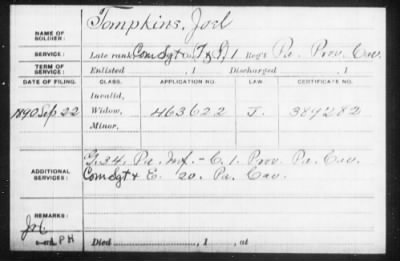 NAME OF SOLDIER: Tompkins, Joel
SERVICE: Late rank, Com Sgt F & S 1 Reg't Pa. Prov. Cav.
TERM OF SERVICE: Enlisted , 1 Discharged , 1
DATE OF FILING. CLASS. APPLICATION NO. LAW. CERTIFICATE NO.
Invalid,
1890 Sep 22 Widow, 463622 J. 384282
Minor,
ADDITIONAL SERVICES: G. 34, Pa. Inf. – C. 1. Prov. Pa. Cav.
Com Sgt & C. 20. Pa. Cav.
REMARKS:
P H Died , 1 , at